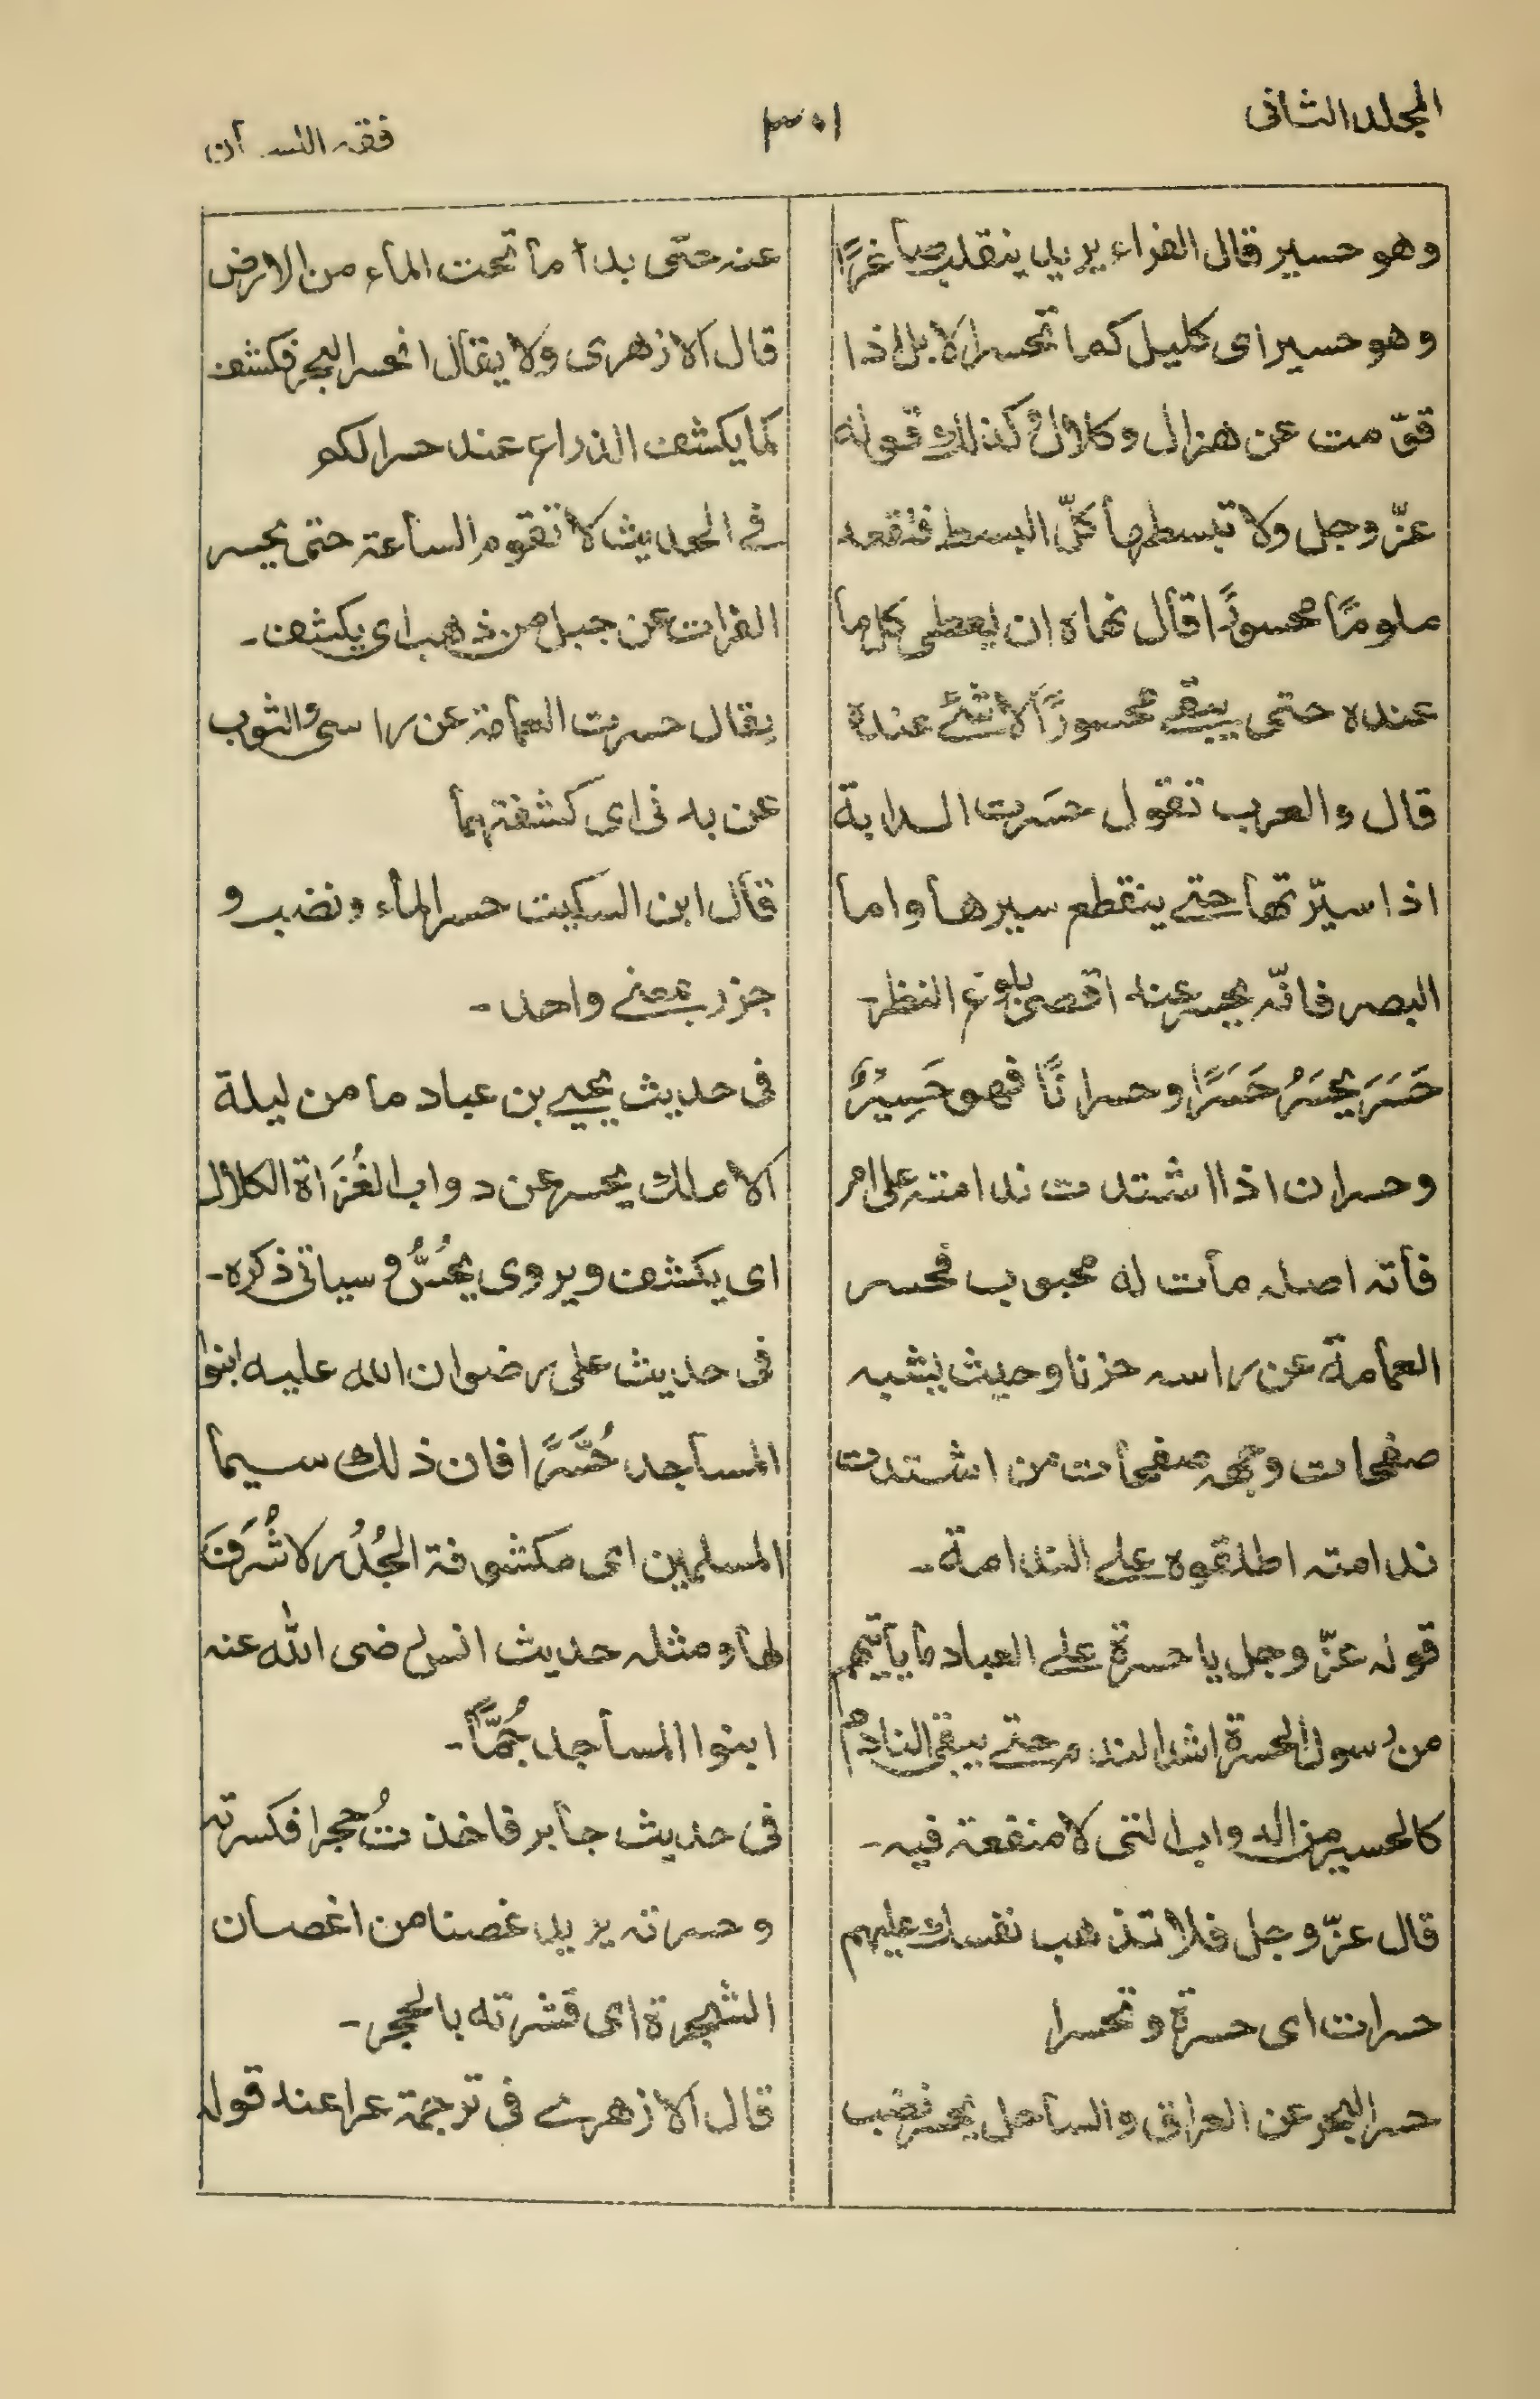 المجلد الثانى
٣٠١
فقه القرآن
وهو حسير قال الفراء يريد ينقلب صاغرًا
وهو حسير اى كليل كما تحسر الابل اذا
قوّمت عن هزال وكلال وكذلك قوله
عزّ وجل ولا تبسطها كلّ البسط فتقعد
ملومًا محسورًا قال نهاه ان يعطى كل ما
عنده حتى يبقے محسورًا لا شئ عنده
قال والعرب تقول حسَرت الدابة
اذا سيّرتها حتے ينقطع سيرها واما
البصر فانّه يحسر عنه اقصى بلوغ النظر۔
حَسَرَ يحسَرُ حَسَرًا وحسرانًا فهو حَسِيْرٌ
وحسران اذا اشتدت ندامته على امر
فاته اصله مات له محبوب فحسر
العمامة عن راسه حزنا وحيث يشبه
صفحات وجهه صفحات من اشتدت
ندامته اطلقوه علے الندامة۔
قوله عزّ وجل يا حسرة علے العباد ما ياتيهم
من رسول الحسرة اشد الندم حتے يبقى النادم
كالحسير من الدواب التى لا منفعة فيه۔
قال عزّ وجل فلا تذهب نفسك عليهم
حسرات اى حسرة وتحسرا
حسر البحر عن العراق والساحل يحسر نضب
عنه حتّى بدا ما تحت الماء من الارض
قال الازهرى ولا يقال انحسر البحر فكشف
كما يكشف الذراع عند حسر الكم
فے الحديث لا تقوم الساعة حتى يحسر
الفرات عن جبل من ذهب اى يكشف۔
يقال حسرت العمامة عن راسى والثوب
عن بدنى اى كشفتهما
قال ابن السكيت حسر الماء ونضب و
جزر بمعنے واحد۔
فى حديث يحيے بن عباد ما من ليلة
الا ملك يحسر عن دواب الغُزَاة الكلال
اى يكشف ويروى يحُسُّ وسياتى ذكره۔
فى حديث على رضوان الله عليه ابنوا
المساجد حُسَّرًا فان ذلك سيما
المسلمين اى مكشوفة الجُدُر لا شُرَفَ
لها ومثله حديث انس رضى الله عنه
ابنوا المساجد جُمًّا۔
فى حديث جابر فاخذتُ حجرا فكسرته
وحسرته يريد غصنا من اغصان
الشجرة اى قشرته بالحجر۔
قال الازهرے فى ترجمة عرا عند قوله